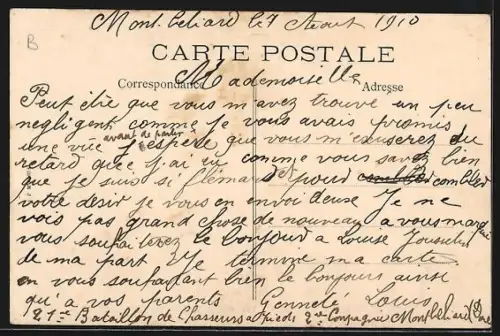 B
Montbeliard le 7 Aout 1910
CARTE POSTALE
Correspondance Mademoiselle Adresse
Peut être que vous m'avez trouvé un peu
negligent comme je vous avais promis
avant de partir
une vue j'espere que vous m'excuserez du
retard que j'ai eu comme vous savez bien
que je suis si flémard pour combler
votre desir je vous en envoi deuse Je ne
vois pas grand chose de nouveau a vous marquer
vous souhaiterez le bonjour a Louise
de ma part Je termine ma carte
en vous souhaitant bien le bonjours ainsi
qu'a vos parents Louis
21me Bataillon de Chasseurs a Pieds 2me Compagnie Montbeliard